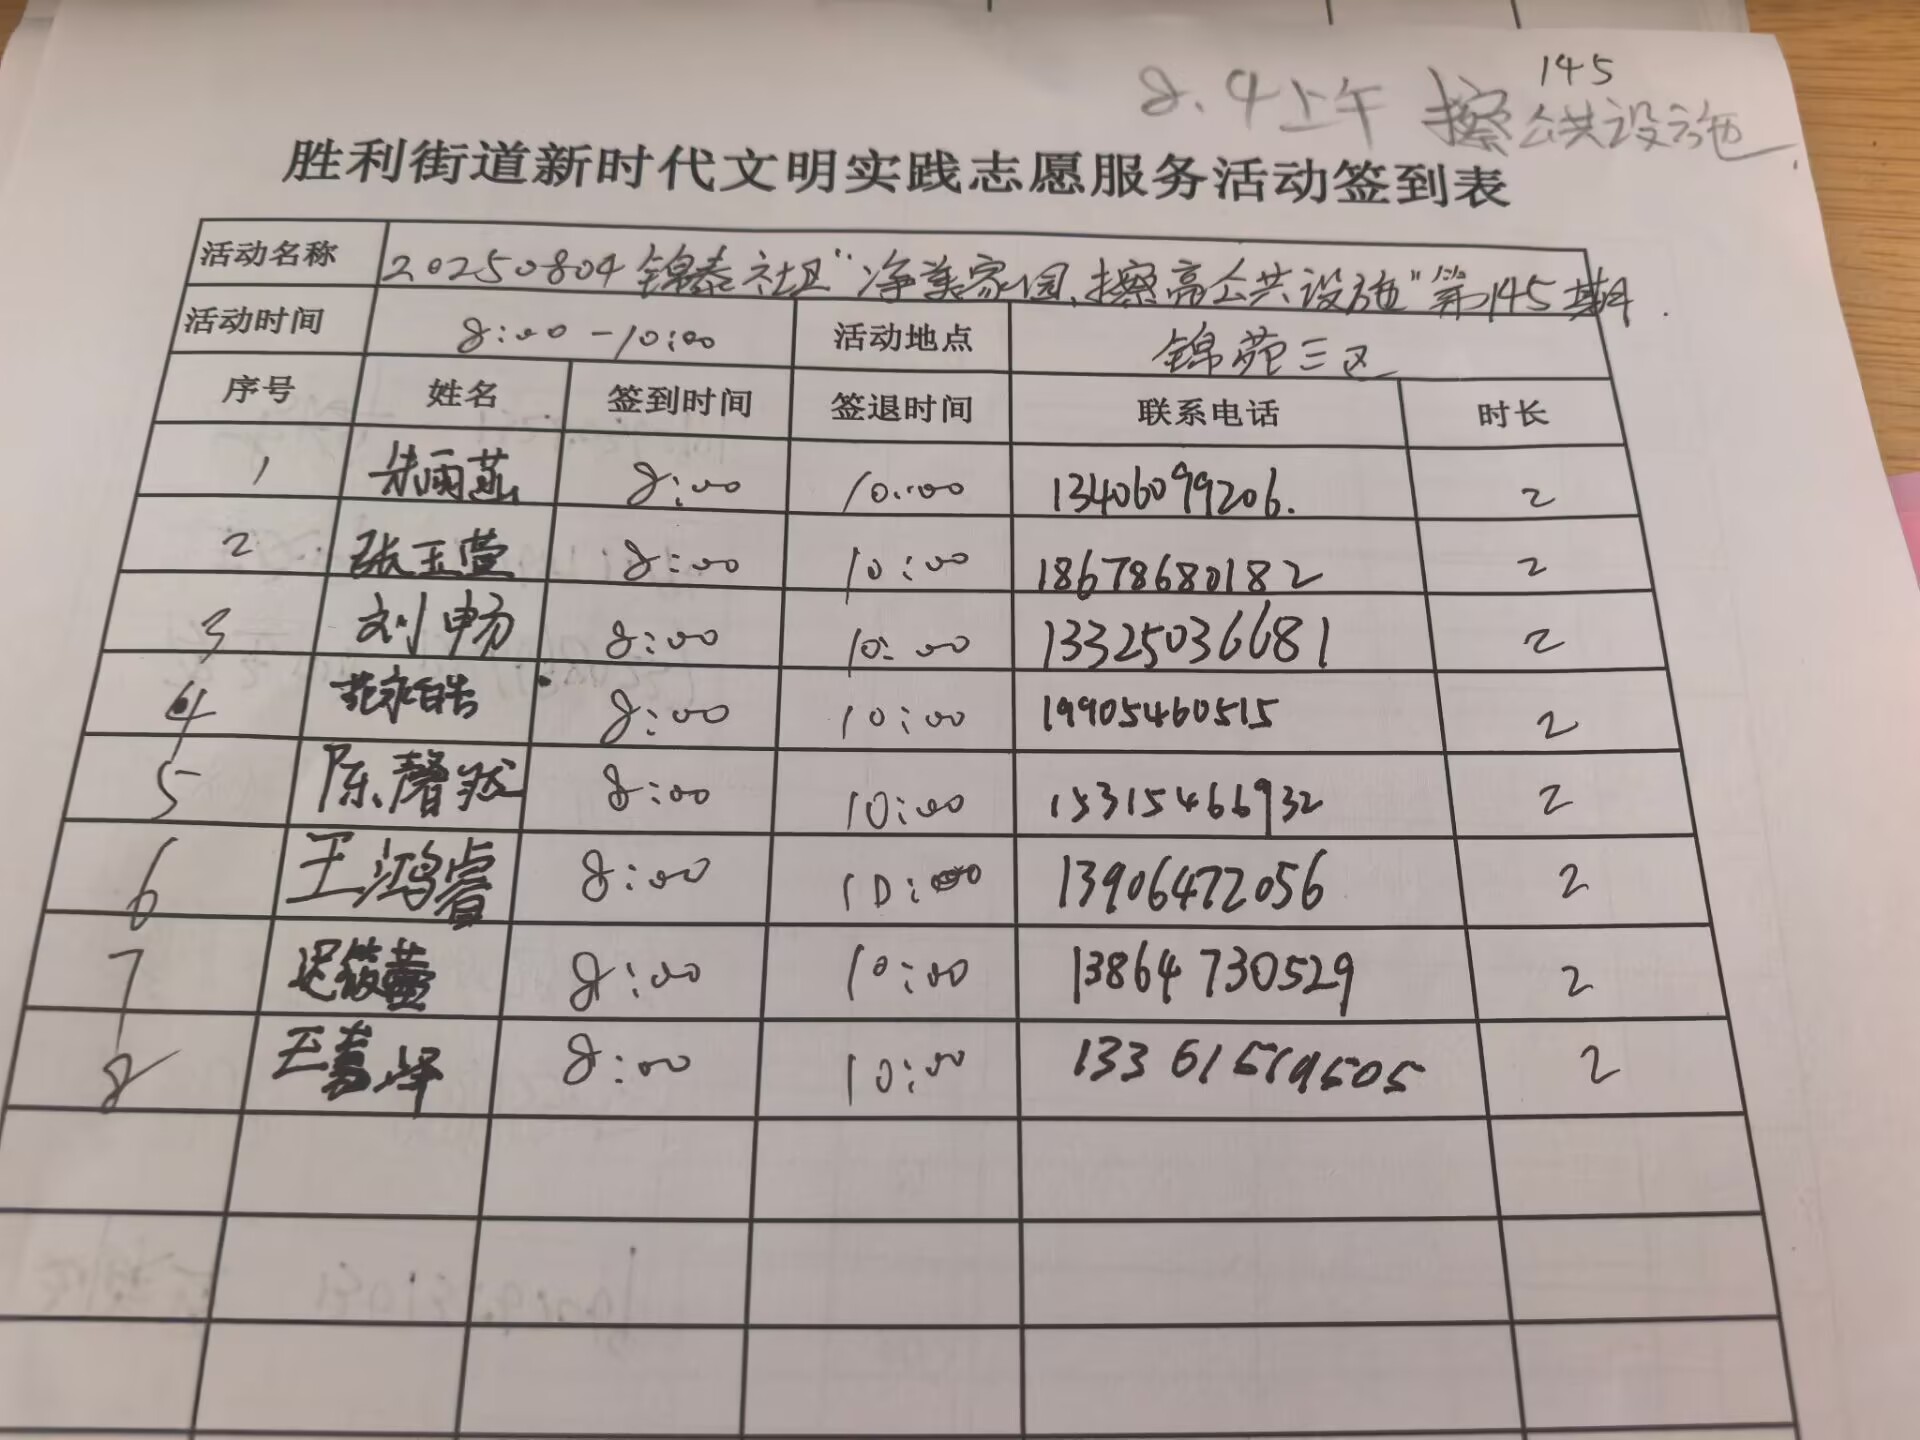 145
8.4上午 擦公共设施
胜利街道新时代文明实践志愿服务活动签到表
活动名称 20250804锦泰社区“净美家园,擦亮公共设施”第145期
活动时间 8:00-10:00 活动地点 锦苑三区
序号 姓名 签到时间 签退时间 联系电话 时长
1 朱雨菡 8:00 10:00 13406099206. 2
2 张玉萱 8:00 10:00 18678680182 2
3 刘畅 8:00 10:00 13325036681 2
4 范永皓 8:00 10:00 19905460515 2
5 陈馨然 8:00 10:00 15315466932 2
6 王鸿睿 8:00 10:00 13906472056 2
7 迟筱萱 8:00 10:00 13864730529 2
8 王 泽 8:00 10:00 13361519505 2